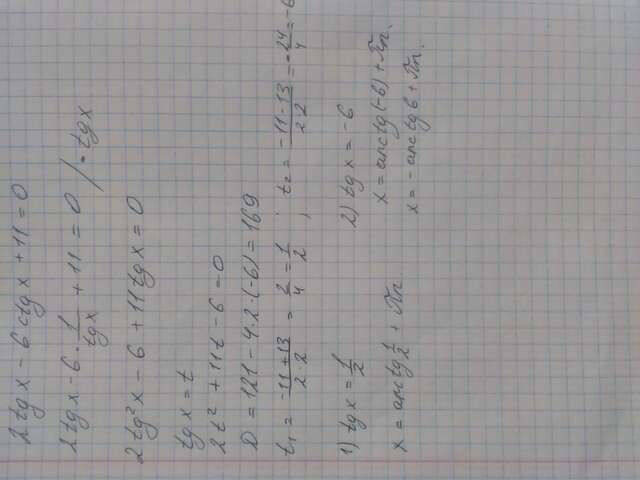 2 tg x - 6 ctg x + 11 = 0
2 tg x - 6 · 1/tg x + 11 = 0 / · tg x
2 tg² x - 6 + 11 tg x = 0
tg x = t
2t² + 11t - 6 = 0
D = 121 - 4·2·(-6) = 169
t₁ = (-11 + 13)/(2·2) = 2/4 = 1/2 ; t₂ = (-11 - 13)/(2·2) = -24/4 = -6
1) tg x = 1/2 2) tg x = -6
x = arctg 1/2 + πn x = arctg(-6) + πn.
x = - arctg 6 + πn.